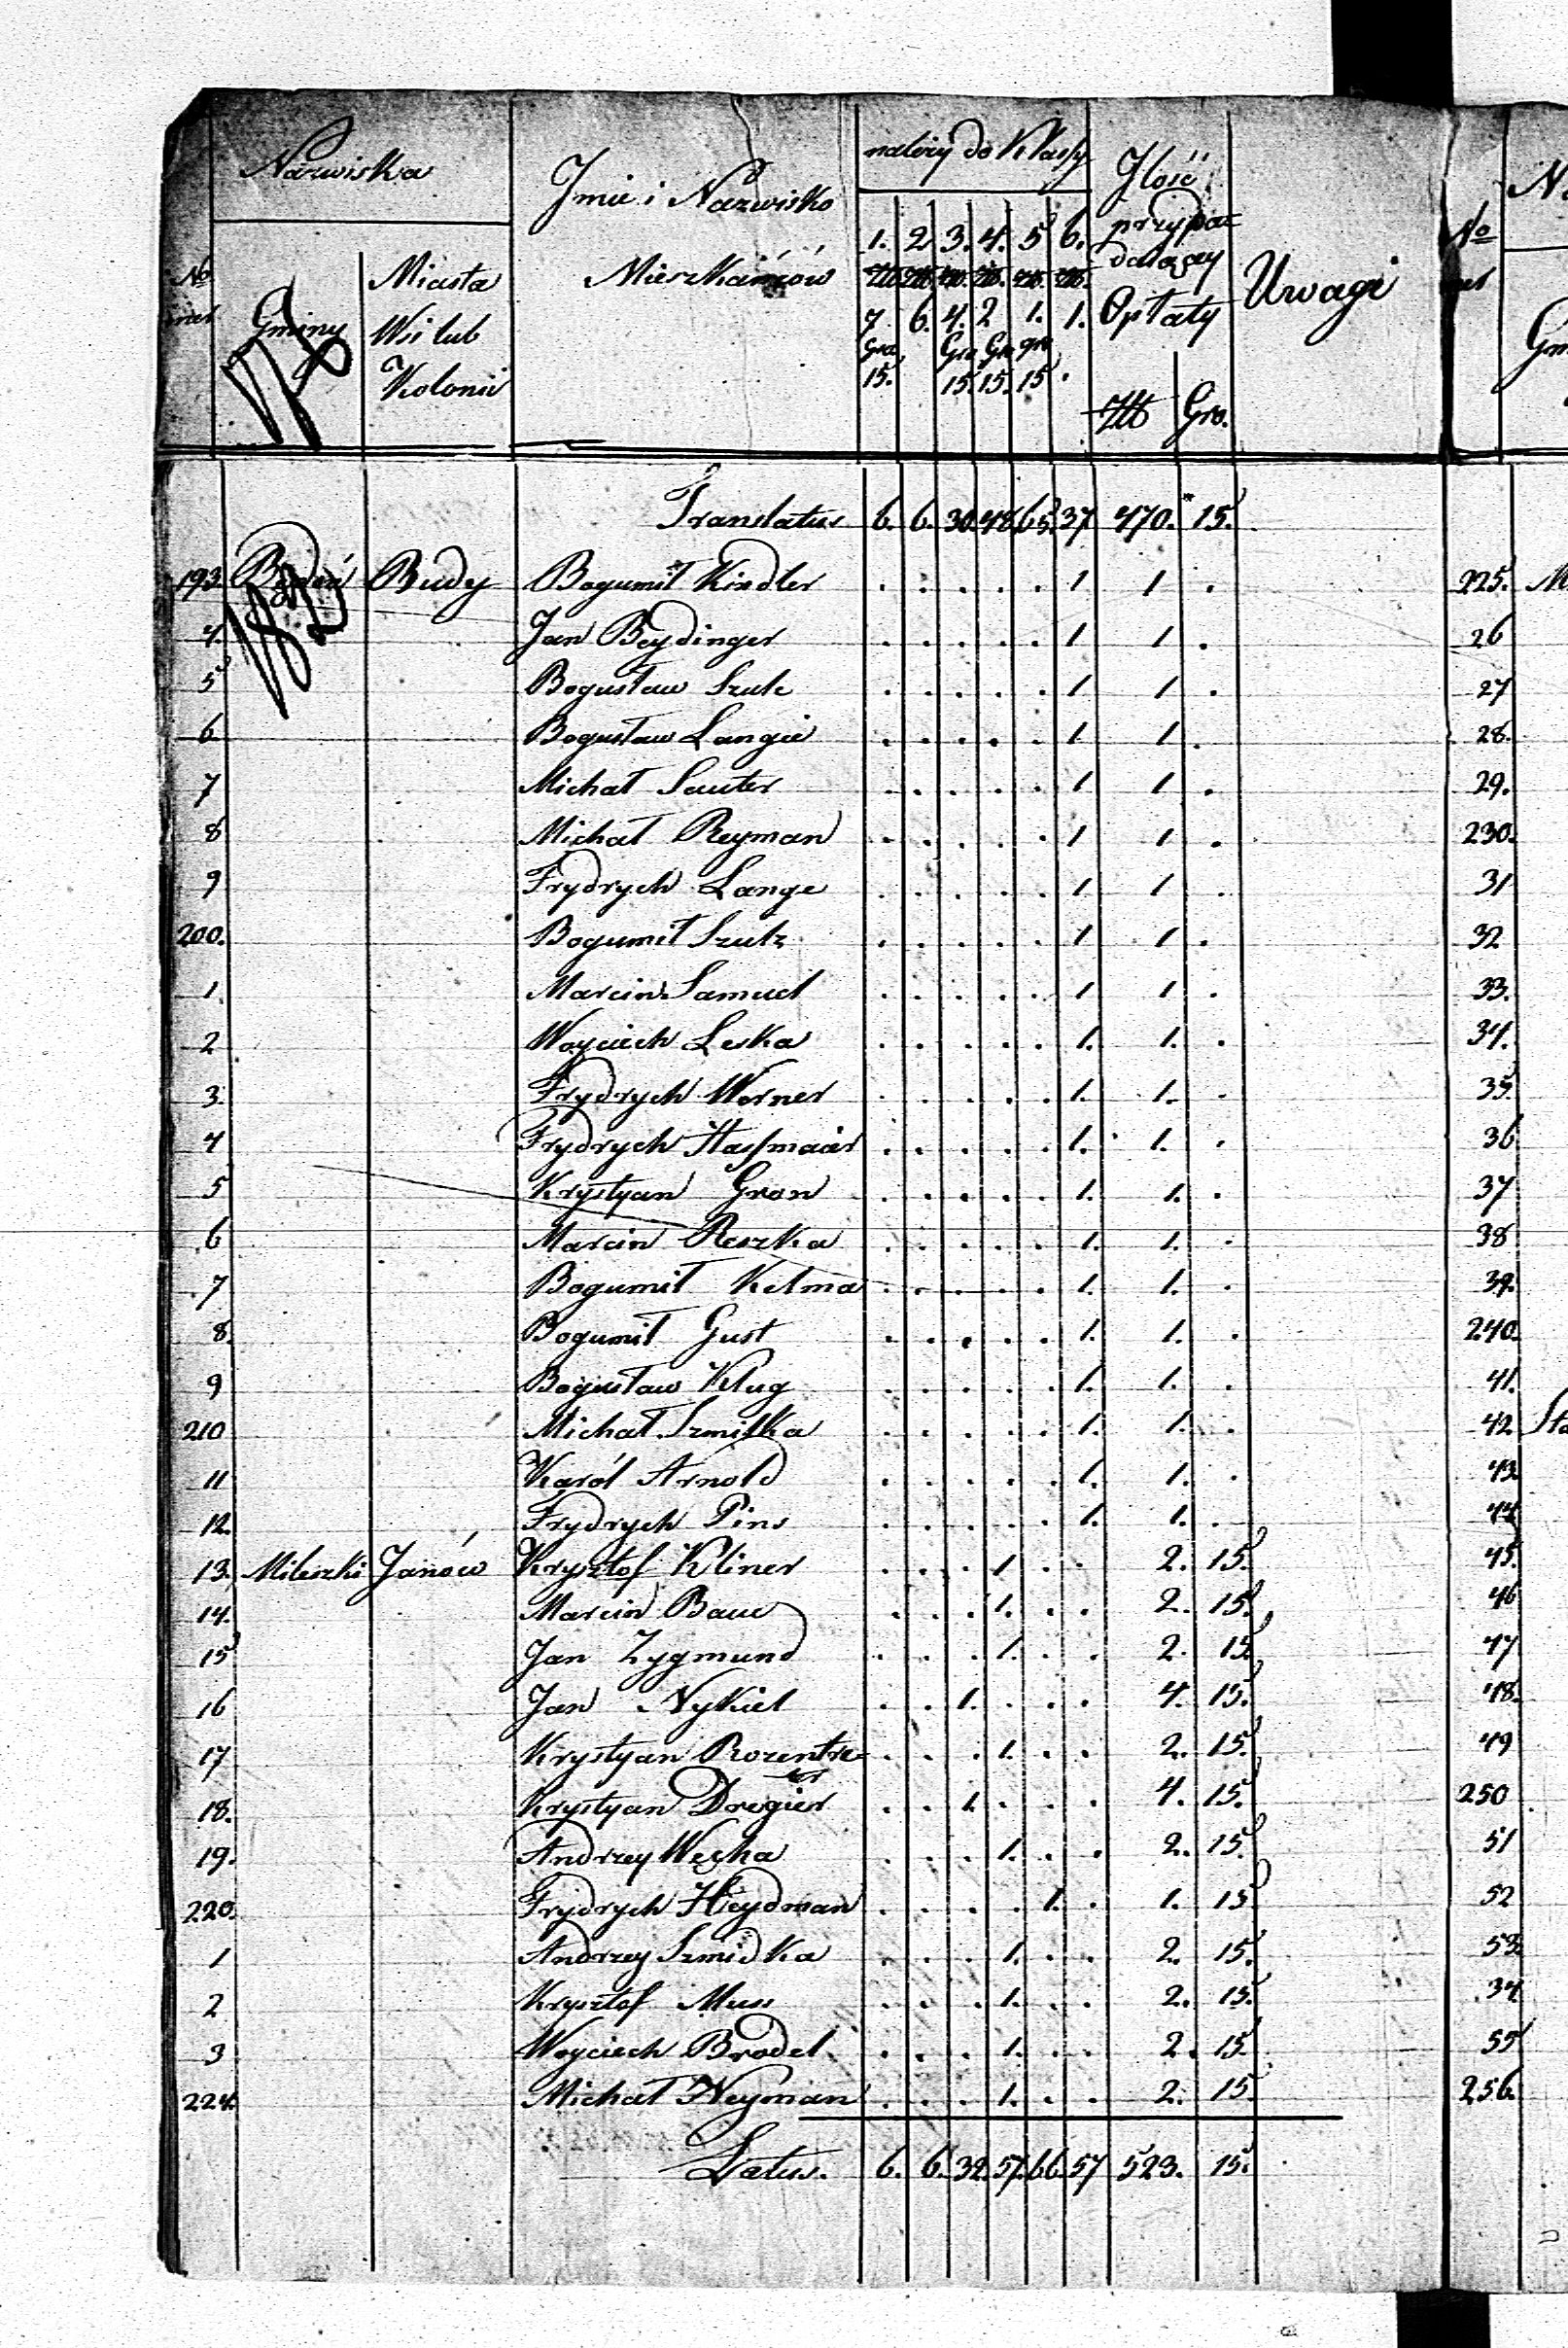 Nazwiska
Jmie i Nazwisko Mieszkańców
należy do Klassy
Jlość przypadaiącey Opłaty
Uwagi
No
Gminy
Miasta Wsi lub Kolonii
1. 2 3. 4. 5 6.
Złt Złt Złt Złt Złt Złt
7 6. 4. 2 1. 1.
Gro Gro Gro gro
15. 15. 15. 15.
Złt Gro.
Translatus 6. 6. 30. 48. 65. 37 470. 15.
193. Budy Bogumił Kindler . . . . . 1 1 .
4. Jan Beydinger . . . . . 1 1 .
5 Bogusław Szulc . . . . . 1 1 .
6 Bogusław Langie . . . . . 1 1 .
7 Michał Sauter . . . . . 1 1 .
8 Michał Reyman . . . . . 1 1 .
9 Frydrych Lange . . . . . 1 1 .
200. Bogumił Szulz . . . . . 1 1 .
1. Marcin Samuel . . . . . 1 1 .
2 Woyciech Leska . . . . . 1. 1. .
3. Frydrych Worner . . . . . 1. 1. .
4 Frydrych . . . . . 1. 1. .
5 Krystyan Gron . . . . . 1. 1. .
6 Marcin Reszka . . . . . 1. 1. .
7 Bogumił Kelma . . . . . 1. 1. .
8. Bogumił Gust . . . . . 1. 1. .
9 Bogusław Klug . . . . . 1. 1. .
210 Michał Szmitka . . . . . 1. 1. .
11 Karól Arnold . . . . . 1. 1. .
12. Frydrych Pins . . . . . 1. 1. .
13. Mileszki Janów Krysztof Kliner . . . 1 . . 2. 15.
14. Marcin Baue . . . 1. . . 2. 15.
15 Jan Zygmund . . . 1. . . 2. 15.
16 Jan Nykiel . . 1. . . . 4. 15.
17 Krystyan Rozentre-
ter . . . 1. . . 2. 15.
18. Krystyan Dregier . . 1. . . . 4. 15.
19. Andrzey Wecha . . . 1. . . 2. 15.
220. Frydrych Heydman . . . . 1. . 1. 15
1 Andrzey Szmidka . . . 1. . . 2. 15.
2 Krysztof Muss . . . 1. . . 2. 15.
3 Woyciech Brodel . . . 1. . . 2. 15
224. Michał Neyman . . . 1. . . 2. 15.
Latus. 6. 6. 32. 57. 66. 57 523. 15.
No
225. M
26
27
28.
29.
230.
31
32
33.
34.
35.
36
37
38
39.
240.
41.
42. Sta
43
44
45.
46
47
48.
49
250
51
52
53.
34
55
256.